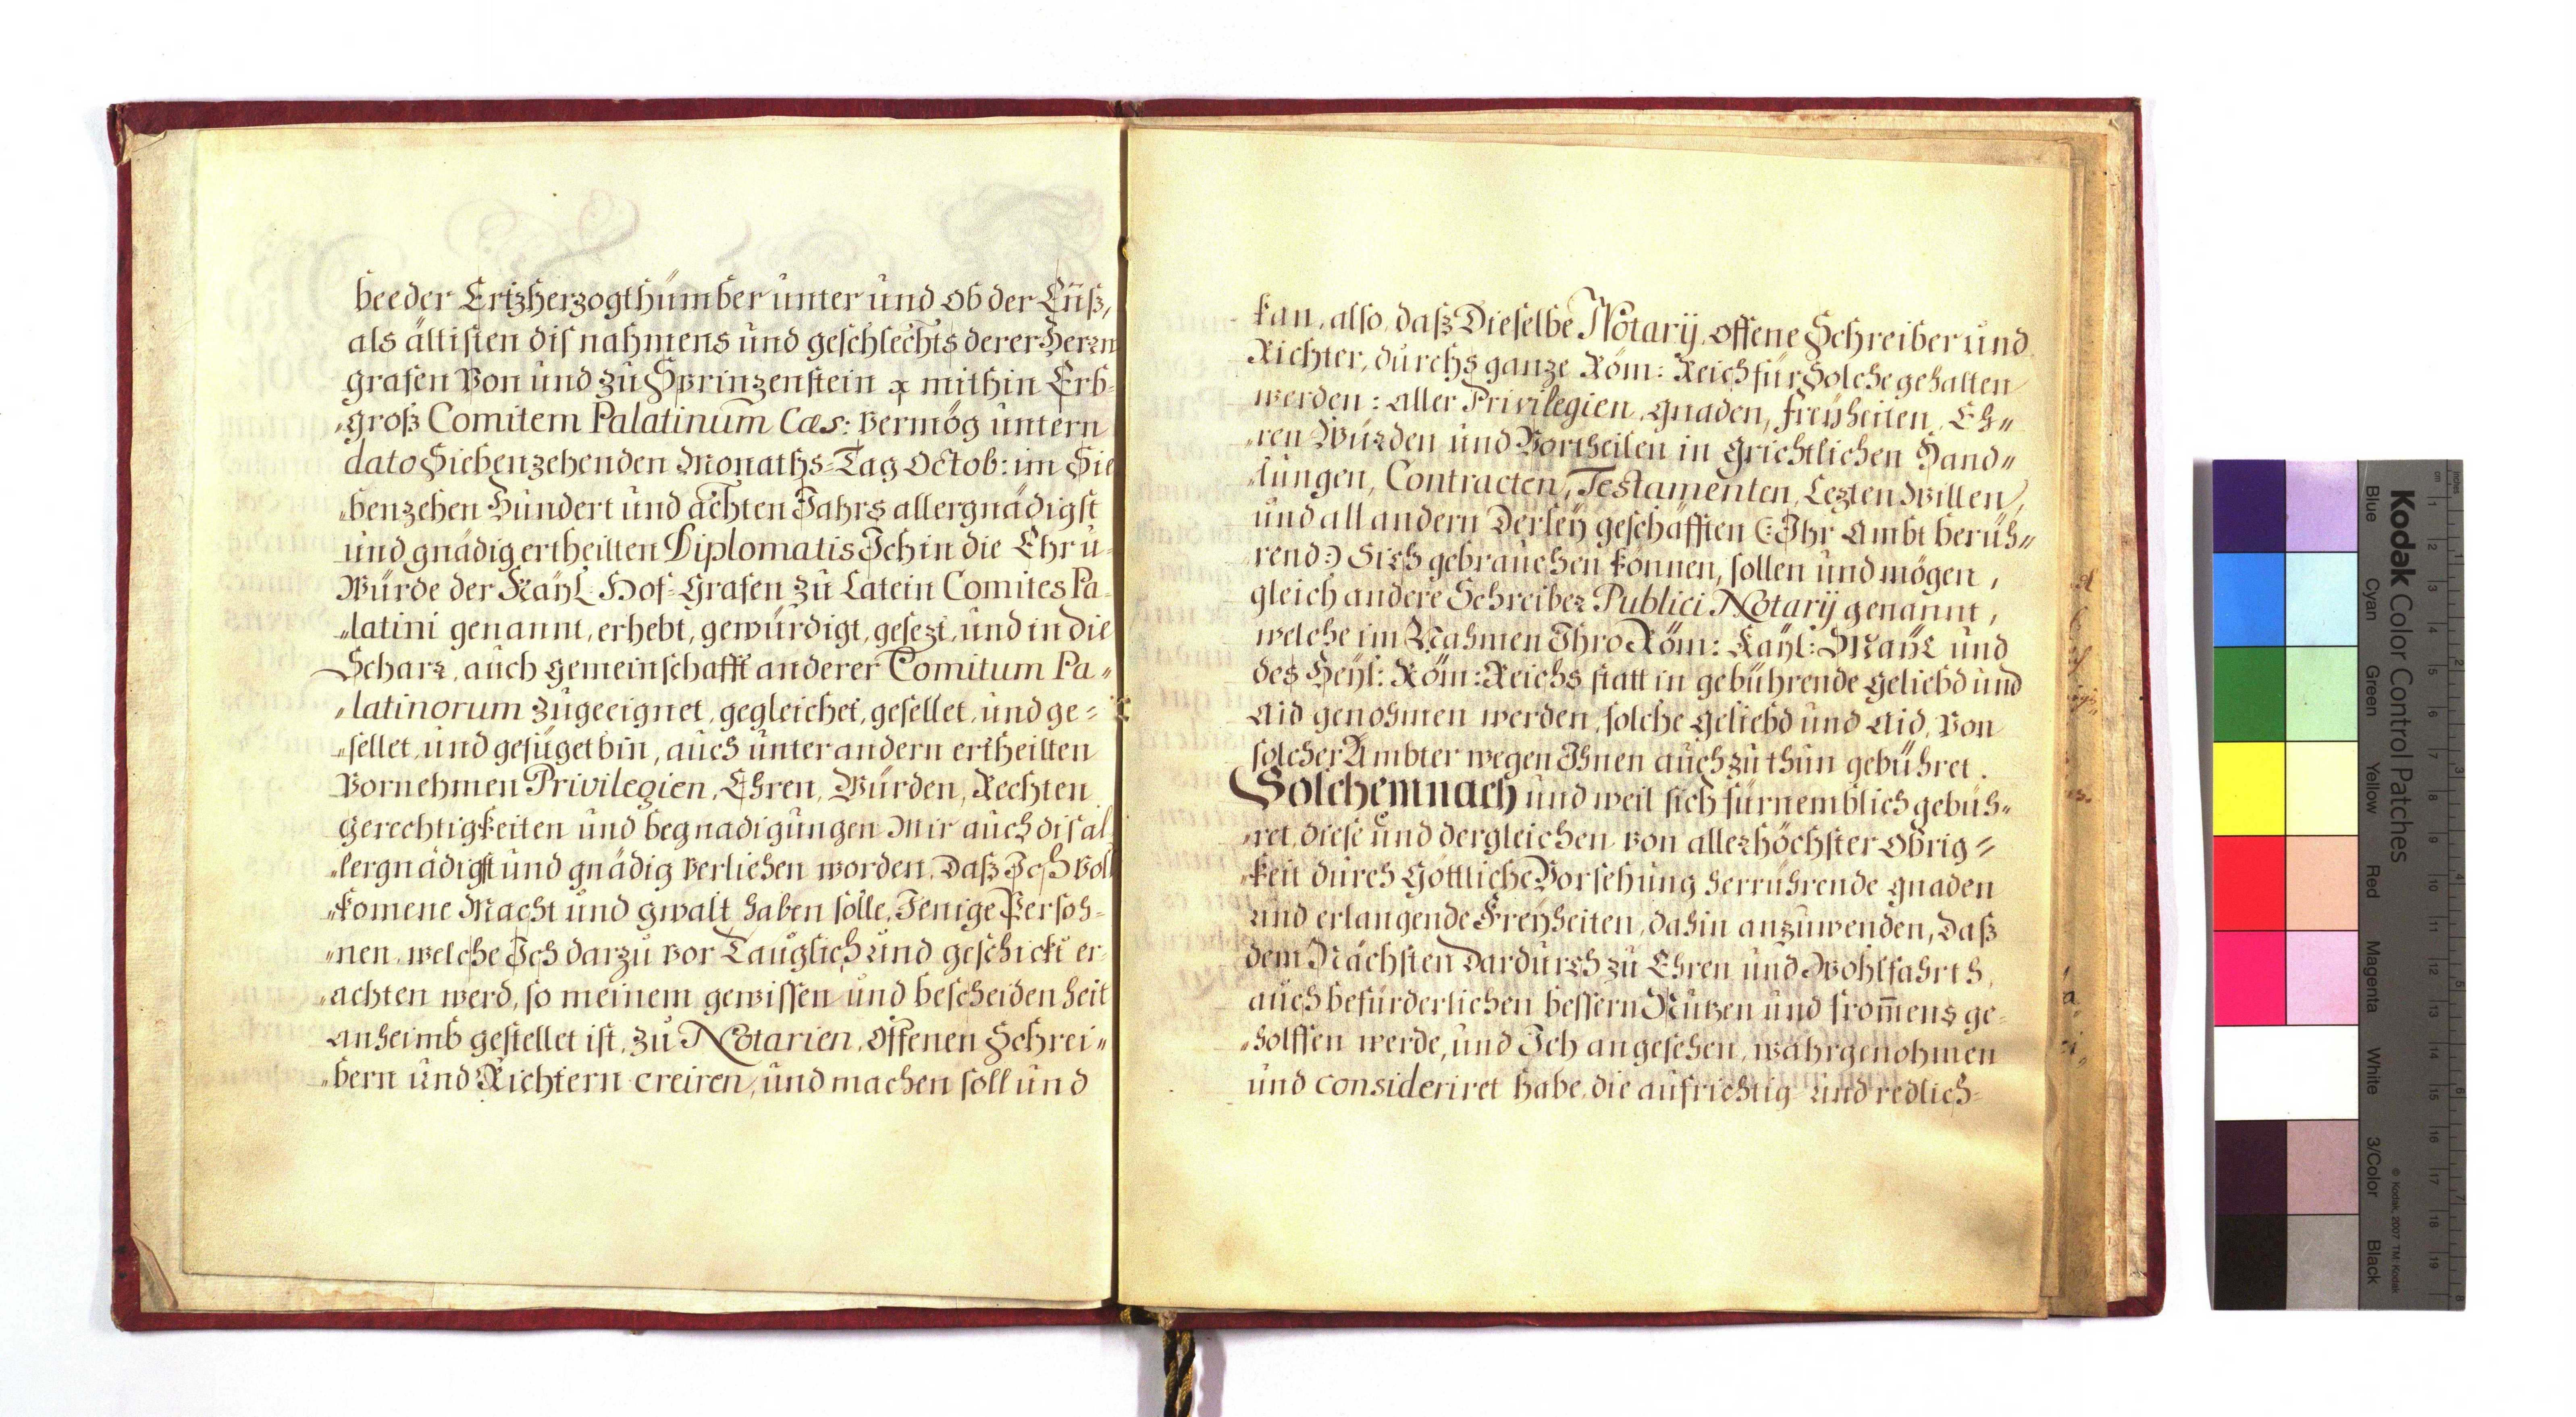 beeder Ertzherzogthümber unter und ob der Ennß,
als ältisten dis nahmens und geschlechts derer Herrn
grafen Von und zu Sprinzenstein ꝛc mithin Erb-
„groß Comitem Palatinum Cæs: vermög untern
dato Siebenzehenden Monaths-Tag Octob: im Sie
„benzehen Hundert und achten Jahrs allergnädigst
und gnädig ertheilten Diplomatis Ich in die Ehr u-
Würde der Kaÿl: Hof-Grafen zu Latein Comites Pa-
„latini genannt, erhebt, gewürdigt, gesezt, und in die
Scharr, auch gemeinschafft anderer Comitum Pa„
„latinorum zugeeignet, gegleichet, gesellet, und ge=
„sellet, und gefüget bin, auch unter andern ertheilten
Vornehmen Privilegien, Ehren, Würden, Rechten
gerechtigkeiten und begnadigungen Mir auch dis al
„lergnädigst und gnädig verliehen worden, Daß Ich vol
„komene Macht und gwalt haben solle, Jenige Persoh-
„nen, welche Ich darzu vor Tauglich und geschickt er-
„achten werd, so meinem gewissen und bescheidenheit
anheimb gestellet ist, zu Notarien, offenen Schrei„
„bern und Richtern creiren, und machen soll und
kan, also, daß Dieselbe Notarij, offene Schreiber und
Richter, durchs ganze Röm: Reich für Solche gehalten
werden: aller Privilegien, gnaden, freÿheiten, Eh„
„ren Würden und Vortheilen in grichtlichen Hand„
„lungen, Contracten, Testamenten, Lezten Willen,
und all andern Derleÿ geschäfften (: Ihr Ambt berüh„
„rend :) Sich gebrauchen können, sollen und mögen,
gleich andere Schreiber Publici Notarij genannt,
welche im Nahmen Ihro Röm: Kaÿl: Maÿl und
des Heÿl: Röm: Reichs statt in gebührende geliebd und
aid genohmen werden, solche geliebd und aid, von
solcher Ambter wegen Ihnen auch zu thun gebühret.
Solchemnach und weil sich fürnemblich gebüh„
„ret, diese und dergleichen von allerhöchster obrig=
„keit durch Göttliche Vorsehung herrührende gnaden
und erlangende Freÿheiten, dahin anzuwenden, Daß
dem Nächsten Dardurch zu Ehren und Wohlfahrth,
auch befürderlichen bessern Nutzen und from̄ens ge-
„holffen werde, und Ich angesehen, wahrgenohmen
und consideriret habe, die aufrichtig- und redlich-
Kodak Color Control Patches
© Kodak, 2007 TM: Kodak
Blue Cyan Green Yellow Red Magenta White 3/Color Black
inches 1 2 3 4 5 6 7 8
cm 1 2 3 4 5 6 7 8 9 10 11 12 13 14 15 16 17 18 19